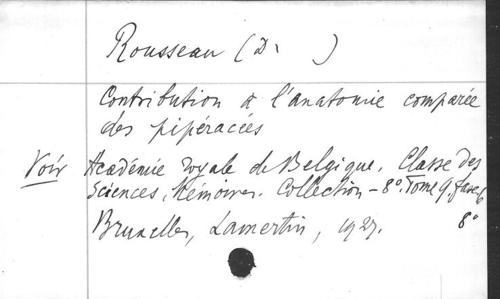 Rousseau (Dr )
Contribution à l'anatomie comparée
des pipéracées
Voir Académie royale de Belgique. Classe des
Sciences, Mémoires. Collection - 8°. Tome 9, fasc. 6
Bruxelles, Lamertin, 1927. 8°